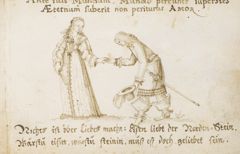 Ante fuit Mundum, Mundo pereunte superstes
Æternum suberit non periturus AMOR
Nichts ist über Liebes macht: Eisen liebt der Norden-Stein.
Wärstu eisen, wärstu steinin, must doch geliebet sein.